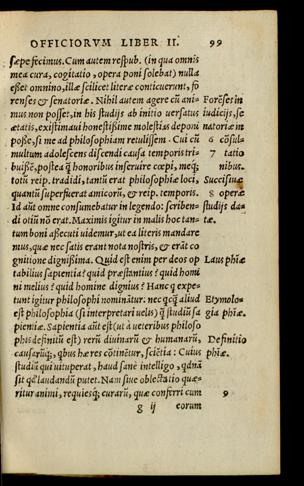 OFFICIORVM LIBER II. 99
sæpe fecimus. Cum autem respub. (in qua omnis
mea cura, cogitatio, opera poni solebat) nulla
esset omnino, illæ scilicet literæ conticuerunt, fo
renses & senatoriæ. Nihil autem agere cũ ani
mus non posset, in his studijs ab initio uersatus
ætatis, existimaui honestißime molestias deponi
poße, si me ad philosophiam retulissem. Cui cũ
multum adolescens discendi causa temporis tri-
buißẽ, posteaq̃ honoribus inseruire cœpi, meq́;
totũ reip. tradidi, tantũ erat philosophiæ loci,
quantũ superfuerat amicorũ, & reip. temporis.
Id aũt omne consumebatur in legendo: scriben-
di otiũ nõ erat. Maximis igitur in malis hoc tan-
tum boni aßecuti uidemur, ut ea literis mandare
mus, quæ nec satis erant nota nostris, & erãt co
gnitione dignißima. Quid est enim per deos op
tabilius sapientia? quid præstantius? quid homi
ni melius? quid homine dignius? Hanc q̃ expe-
tunt igitur philosophi nominãtur. nec qcq̃ aliud
est philosophia (si interpretari uelis) q̃ studiũ sa
pientiæ. Sapientia aũt est (ut à ueteribus philoso
phis definitũ est) rerũ diuinarũ & humanarũ,
causarũq́;, qbus hæ res cõtinẽtur, sciẽtia: Cuius
studiũ qui uituperat, haud sanè intelligo, qdnã
sit qd laudandũ putet. Nam siue oblectatio quæ-
ritur animi, requiesq́; curarũ, quæ conferri cum
g ij eorum
Forẽses in
iudicijs, se
natoriæ in
6 cõsul-
7 tatio
nibus.
Succisiuæ
8 operæ
studijs da-
tæ.
Laus phiæ
Etymolo-
gia phiæ.
Definitio
phiæ.
9